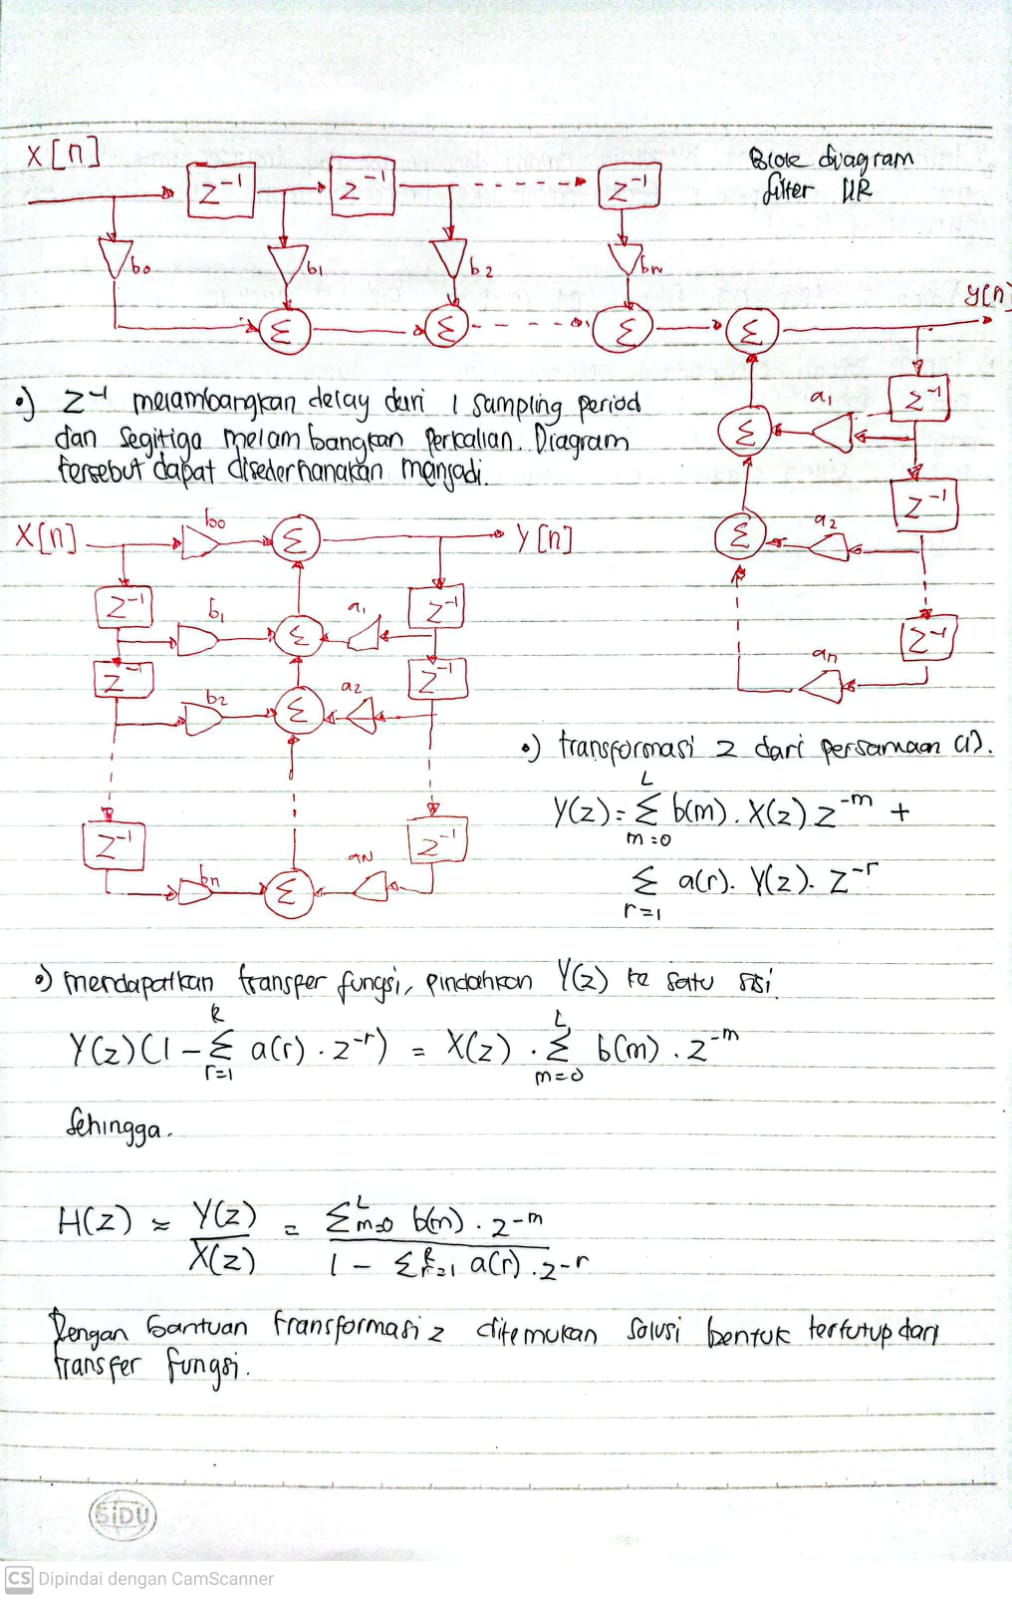 X[n]
Block diagram
filter IIR
z⁻¹ z⁻¹ z⁻¹
b0 b1 b2 bn
y[n]
Σ Σ Σ Σ
a1 z⁻¹
Σ
z⁻¹
a2
Σ
z⁻¹
an
•) z⁻¹ melambangkan delay dari 1 sampling period
dan segitiga melambangkan perkalian. Diagram
tersebut dapat disederhanakan menjadi.
X[n] b0 Σ Y[n]
z⁻¹ b1 Σ a1 z⁻¹
z⁻¹ b2 Σ a2 z⁻¹
z⁻¹ bn Σ aN z⁻¹
•) transformasi z dari persamaan (1).
Y(z) = Σ_{m=0}^{L} b(m) . X(z) z^{-m} +
Σ_{r=1} a(r). Y(z). z^{-r}
•) mendapatkan transfer fungsi, pindahkan Y(z) ke satu sisi
Y(z)(1 - Σ_{r=1}^{k} a(r) . z^{-r}) = X(z) . Σ_{m=0}^{L} b(m) . z^{-m}
Sehingga.
H(z) = Y(z)/X(z) = Σ_{m=0}^{L} b(m) . z^{-m} / 1 - Σ_{r=1}^{k} a(r) . z^{-r}
Dengan bantuan transformasi z ditemukan solusi bentuk tertutup dari
transfer fungsi.
SiDU
CS Dipindai dengan CamScanner